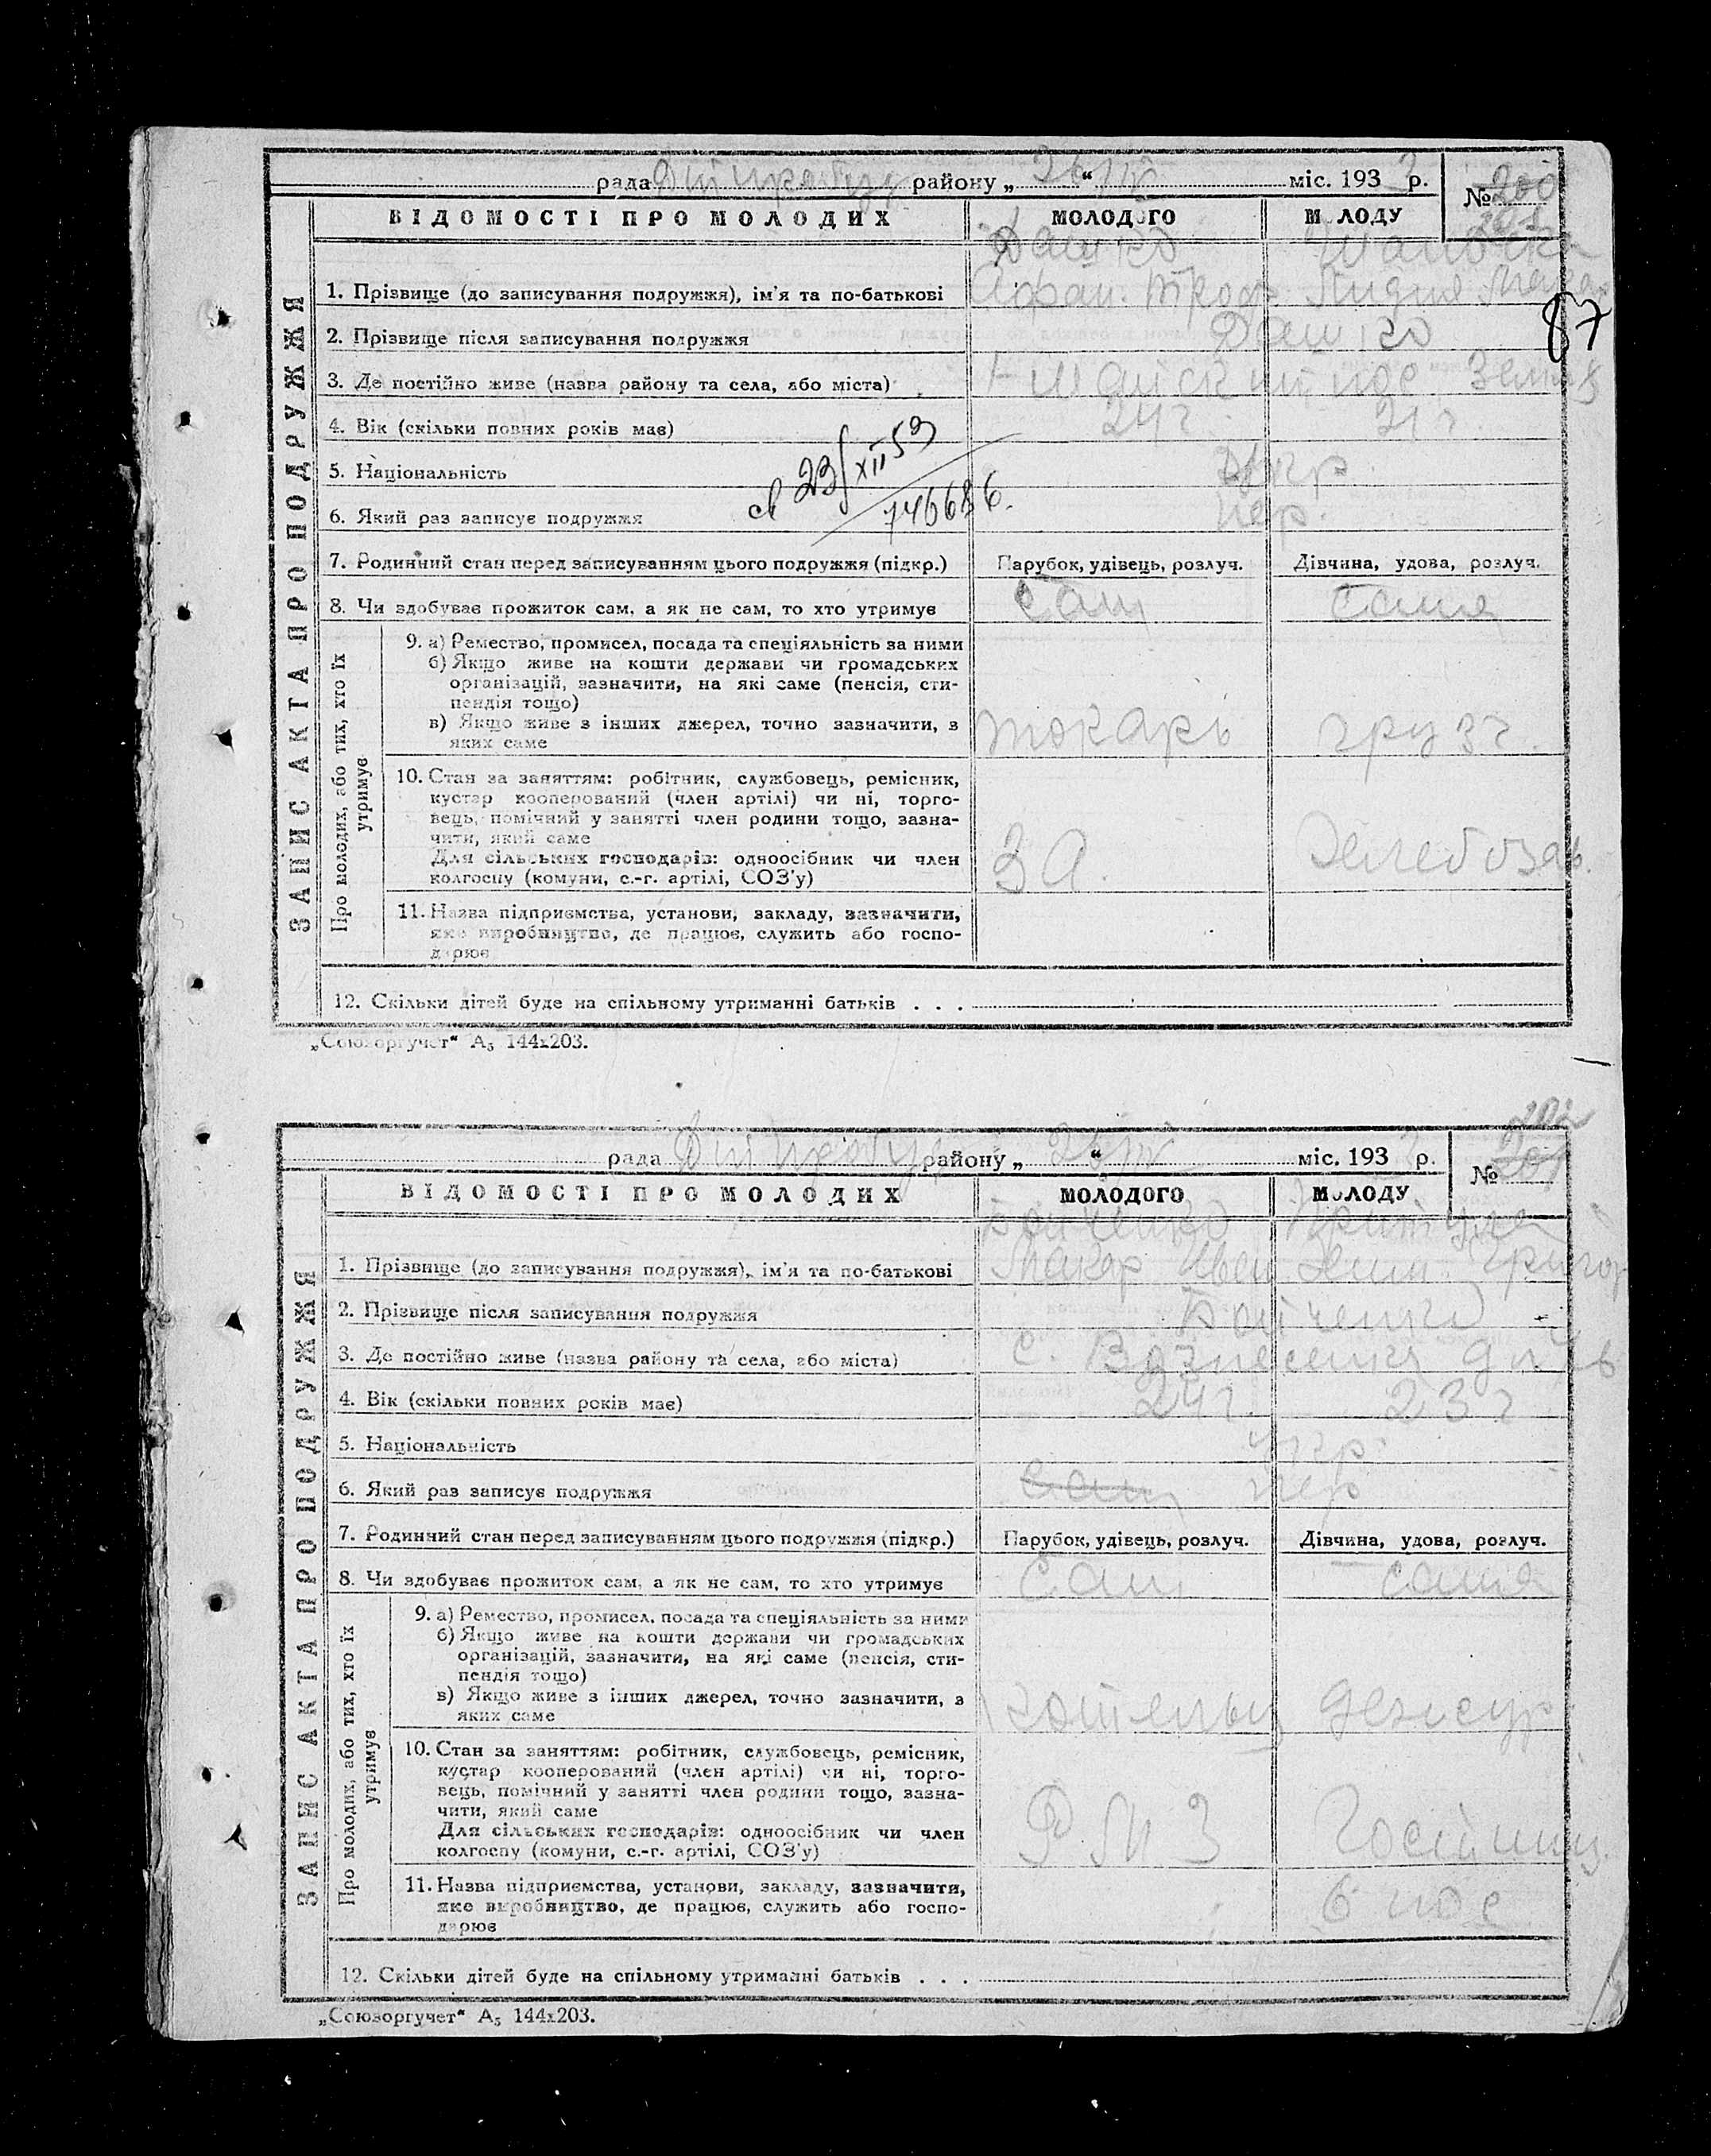 рада району „ 26 “ міс. 193 р. № 200
201
ЗАПИС АКТА ПРО ПОДРУЖЖЯ
ВІДОМОСТІ ПРО МОЛОДИХ МОЛОДОГО МОЛОДУ
Дашко
1. Прізвище (до записування подружжя), ім'я та по-батькові Афан. Троф. Лидия Макар
87
2. Прізвище після записування подружжя Дашко
3. Де постійно живе (назва району та села, або міста)
4. Вік (скільки повних років має) 24 г. 21 г.
св 23/XII 59
746686.
5. Національність Укр.
6. Який раз записує подружжя пер.
7. Родинний стан перед записуванням цього подружжя (підкр.) Парубок, удівець, розлуч. Дівчина, удова, розлуч.
8. Чи здобуває прожиток сам, а як не сам, то хто утримує сам сама
Про молодих, або тих, хто їх утримує
9. а) Ремество, промисел, посада та спеціяльність за ними
б) Якщо живе на кошти держави чи громадських
організацій, зазначити, на які саме (пенсія, сти-
пендія тощо)
в) Якщо живе з інших джерел, точно зазначити, з
яких саме токарь грузч.
10. Стан за заняттям: робітник, службовець, ремісник,
кустар кооперований (член артілі) чи ні, торго-
вець, помічний у занятті член родини тощо, зазна-
чити, який саме
Для сільських господарів: одноосібник чи член
колгоспу (комуни, с.-г. артілі, СОЗ'у) Хлебозав.
11. Назва підприємства, установи, закладу, зазначити,
яке виробництво, де працює, служить або госпо-
дарює
12. Скільки дітей буде на спільному утриманні батьків . . .
„Союзоргучет“ А₅ 144х203.
202
рада району „ 26 “ міс. 193 р. № 201
ЗАПИС АКТА ПРО ПОДРУЖЖЯ
ВІДОМОСТІ ПРО МОЛОДИХ МОЛОДОГО МОЛОДУ
Бойченко Притула
1. Прізвище (до записування подружжя), ім'я та по-батькові Макар Иван Григор
2. Прізвище після записування подружжя Бойченко
3. Де постійно живе (назва району та села, або міста) с. Вознесенка
4. Вік (скільки повних років має) 24 г. 23 г
5. Національність укр.
6. Який раз записує подружжя сам пер
7. Родинний стан перед записуванням цього подружжя (підкр.) Парубок, удівець, розлуч. Дівчина, удова, розлуч.
8. Чи здобуває прожиток сам, а як не сам, то хто утримує сам сама
Про молодих, або тих, хто їх утримує
9. а) Ремество, промисел, посада та спеціяльність за ними
б) Якщо живе на кошти держави чи громадських
організацій, зазначити, на які саме (пенсія, сти-
пендія тощо)
в) Якщо живе з інших джерел, точно зазначити, з
яких саме котельщ дежур
10. Стан за заняттям: робітник, службовець, ремісник,
кустар кооперований (член артілі) чи ні, торго-
вець, помічний у занятті член родини тощо, зазна-
чити, який саме
Для сільських господарів: одноосібник чи член
колгоспу (комуни, с.-г. артілі, СОЗ'у) Р М З
11. Назва підприємства, установи, закладу, зазначити,
яке виробництво, де працює, служить або госпо- 6 пос
дарює
12. Скільки дітей буде на спільному утриманні батьків . . .
„Союзоргучет“ А₅ 144х203.